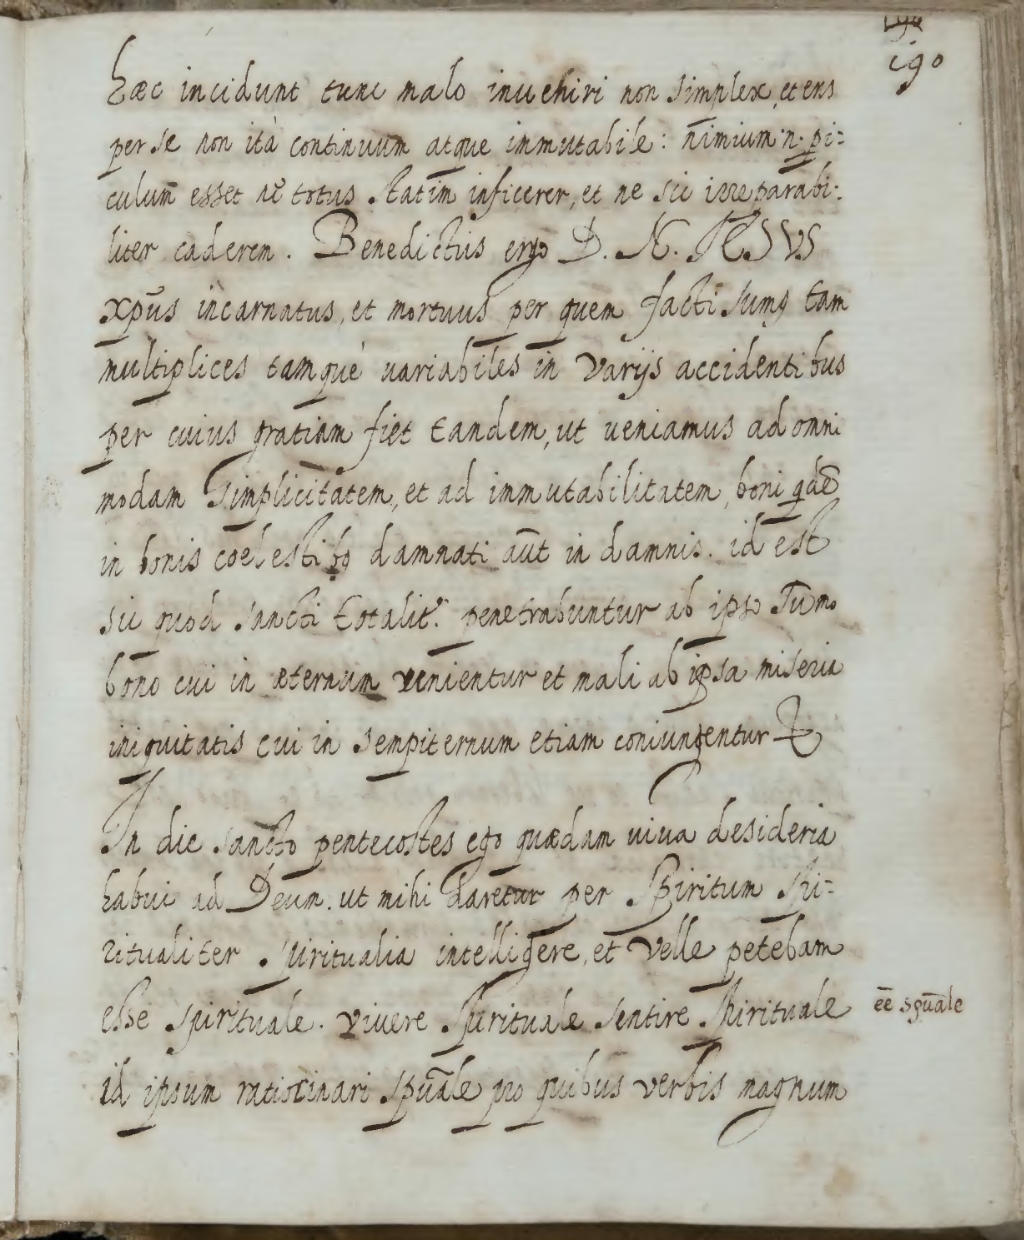 190
hæc incidunt tunc malo inuehiri non simplex, et ens
per se non ità continuum atque immutabile: nimium .n. pi:
culum̃ esset nẽ totus statim inficerer, et ne sic irreparabi:
liter caderem. Benedictus ergo D. N. IESVS
xp̃us incarnatus, et mortuus per quem facti sumꝰ tam
multiplices tamquè uariabiles in varijs accidentibus
per cuius gratiam fiet tandem, ut ueniamus ad omni
modam simplicitatem, et ad immutabilitatem, boni
in bonis coelestibꝰ damnati aũt in damnis. id est
sic quod sancti totalitr̃ penetrabuntur ab ipso sum̃o
bono cui in æternum vnientur et mali ab ipsa miseria
iniquitatis cui in sempiternum etiam coniungentur
In die sancto pentecostes ego quædam uiua desideria
habui ad Deum. ut mihi daretur per Spiritum spi:
ritualiter spiritualia intelligere, et velle petebam
esse spirituale. vivere spirituale sentire spirituale
eẽ sp̃uale
id ipsum ratiocinari sp̃uale pro quibus verbis magnum